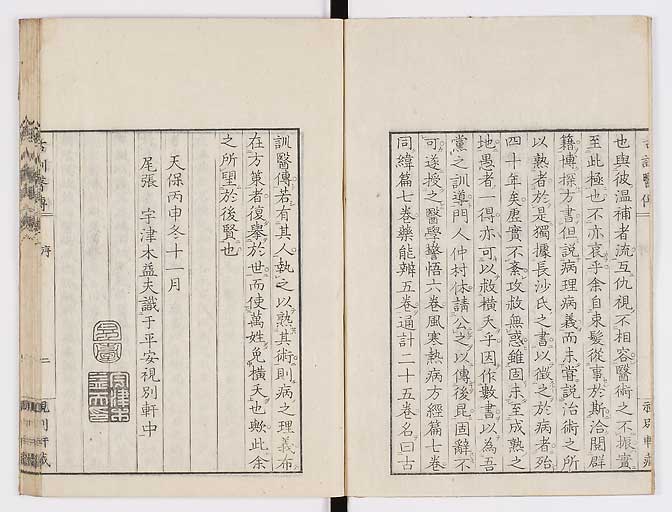 也與彼溫補者流互仇視不相容醫術之不振實
至此極也不亦哀乎余自束髮從事於斯洽閱群
籍博探方書但説病理病義而未嘗説治術之所
以熟者於是獨據長沙氏之書以徵之於病者殆
四十年矣虛實不紊攻救無惑雖固未至成熟之
地愚者一得亦可以救橫夭乎因作數書以為吾
黨之訓導門人仲村体請公之以傳後昆固辭不
可遂授之醫學警悟六卷風寒熱病方經篇七卷
同緯篇七卷藥能辨五卷通計二十五卷名曰古
訓醫傳若有其人執之以熟其術則病之理義布
在方策者復舉於世而使萬姓免橫夭也歟此余
之所望於後賢也
天保丙申冬十一月
尾張 宇津木益夫識于平安視別軒中
古訓醫傳
序
二